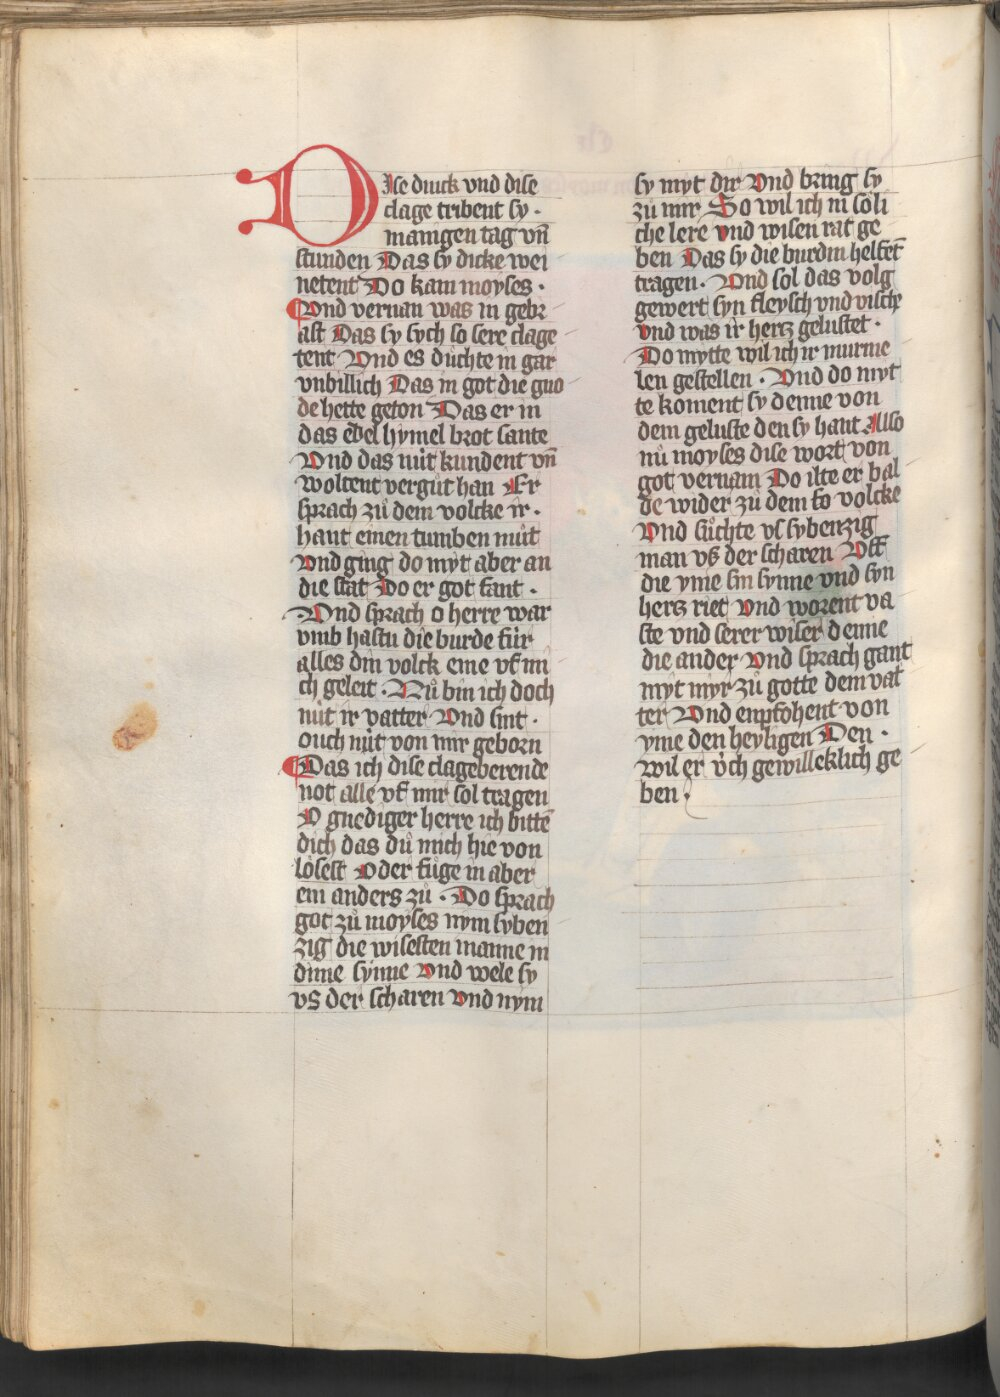 Dise druck vnd dise
clage tribent sy ·
manigen tag vn̄
stunden Das sy dicke wei
netent Do kam moyses ·
Vnd vernan was in gebr
ast Das sy sych so sere clage
tent Vnd es duͤchte in gar
vnbillich Das in got die gno
de hette geton Das er in
das edel hymel brot sante
Vnd das nüt kundent vn̄
woltent vergüt han Er
sprach zů dem volcke ir ·
hant einen tumben můt
Vnd ging do myt aber an
die stat Do er got fant ·
Vnd sprach o herre war
vmb hastu die burde für
alles din volck eine vf mi
ch geleit · Nů bin ich doch
nüt ir vatter Vnd sint ·
ouch nüt von mir geborn
Das ich dise clageberende
not alle vf mir sol tragen
O gnediger herre ich bitte
dich das dů mich hie von
lösest Oder fůge in aber
ein anders zů · Do sprach
got zů moyses nym syben
zig die wisesten manne in
dime synne Vnd wele sy
vs der scharen Vnd nym
sy myt dir Vnd bring sy
zů mir So wil ich in söli
che lere vnd wisen rat ge
ben Das sy die burdin helfēt
tragen · Vnd sol das volg
gewert syn fleysch vnd vische
Vnd was ir hertz gelustet ·
Do mytte wil ich ir murme
len gestellen · Vnd do myt
te koment sy denne von
dem geluste den sy hant Also
nů moyses dise wort von
got vernam Do ilte er bal
de wider zů dem volcke
Vnd sůchte vs sybenzig
man vs der scharen Vff
die yme sin synne vnd syn
hertz riet Vnd worent va
ste vnd serer wiser denne
die ander Vnd sprach gant
myt myr zů gotte dem vat
ter Vnd enpfohent von
yme den heyligen Den ·
wil er üch gewilleklich ge
ben ·